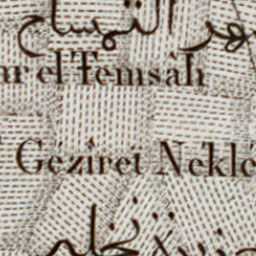 هر التمساح
ar el Temsâh
Gézîret Nekle
جزيرة نخله